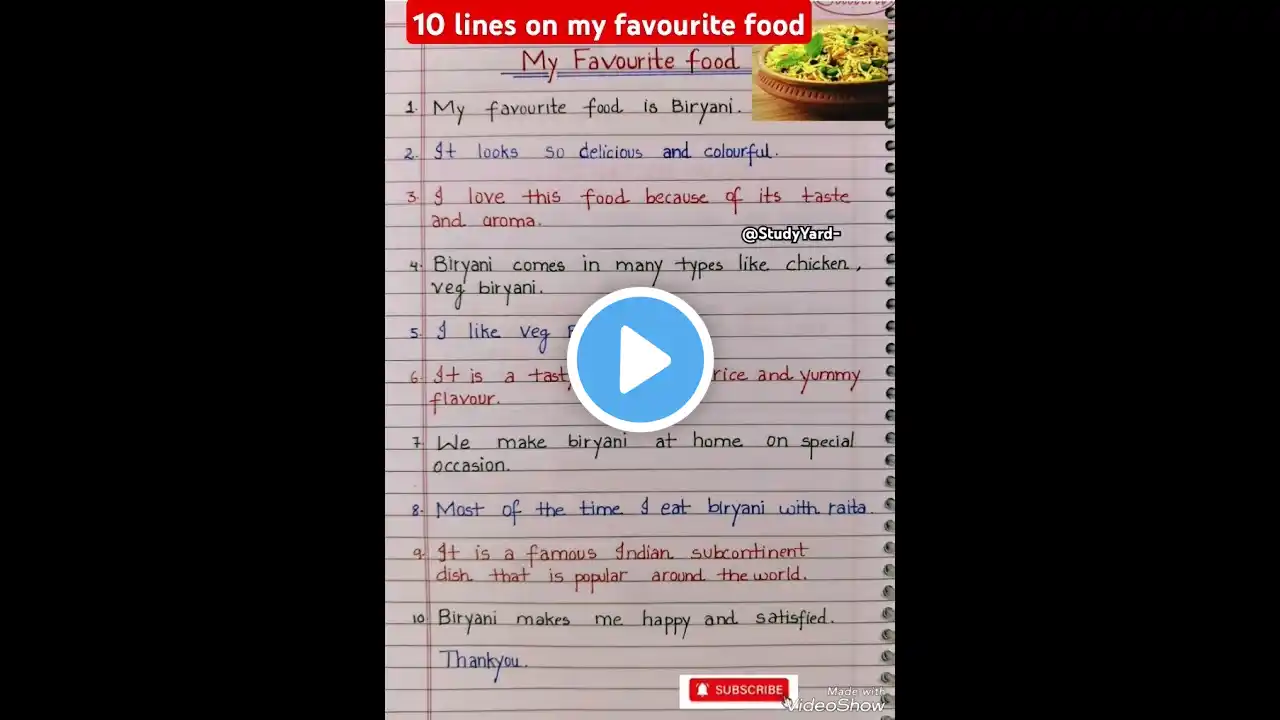 10 lines on my favourite food
My Favourite food
1. My favourite food is Biryani.
2. It looks so delicious and colourful.
3. I love this food because of its taste
and aroma.
@StudyYard-
4. Biryani comes in many types like chicken,
veg biryani.
5. I like veg
6. It is a tasty rice and yummy
flavour.
7. We make biryani at home on special
occasion.
8. Most of the time I eat biryani with raita.
9. It is a famous Indian subcontinent
dish that is popular around the world.
10 Biryani makes me happy and satisfied.
Thankyou.
SUBSCRIBE
Made with
VideoShow